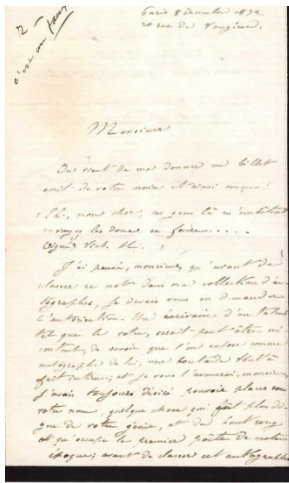 2 -
c'est un faux
Paris 8 décembre 1872
20 rue de Vaugirard.
Monsieur
On vient de me donner un billet
écrit de votre main et ainsi conçu :
" Eh, mon cher, ces gens là m'embêtent
envoyez les donc se faire . . . .
Signé Vict. H. "
J'ai pensé, monsieur, qu'avant de
classer ce mot dans ma collection d'au
tographes, je devais vous en demander
l'autorisation. Un écrivain d'un talent
tel que le votre, serait peut-être mé
content, de savoir que l'on expose comme
autographe de lui, une boutade tout à
fait intime ; et je vous l'avouerai, monsieur,
j'avais toujours désiré pouvoir placer sous
votre nom, quelque chose qui fût plus di
gne de votre génie, et du haut rang
qu'occupe le premier poète de notre
époque ; avant de classer cet autographe